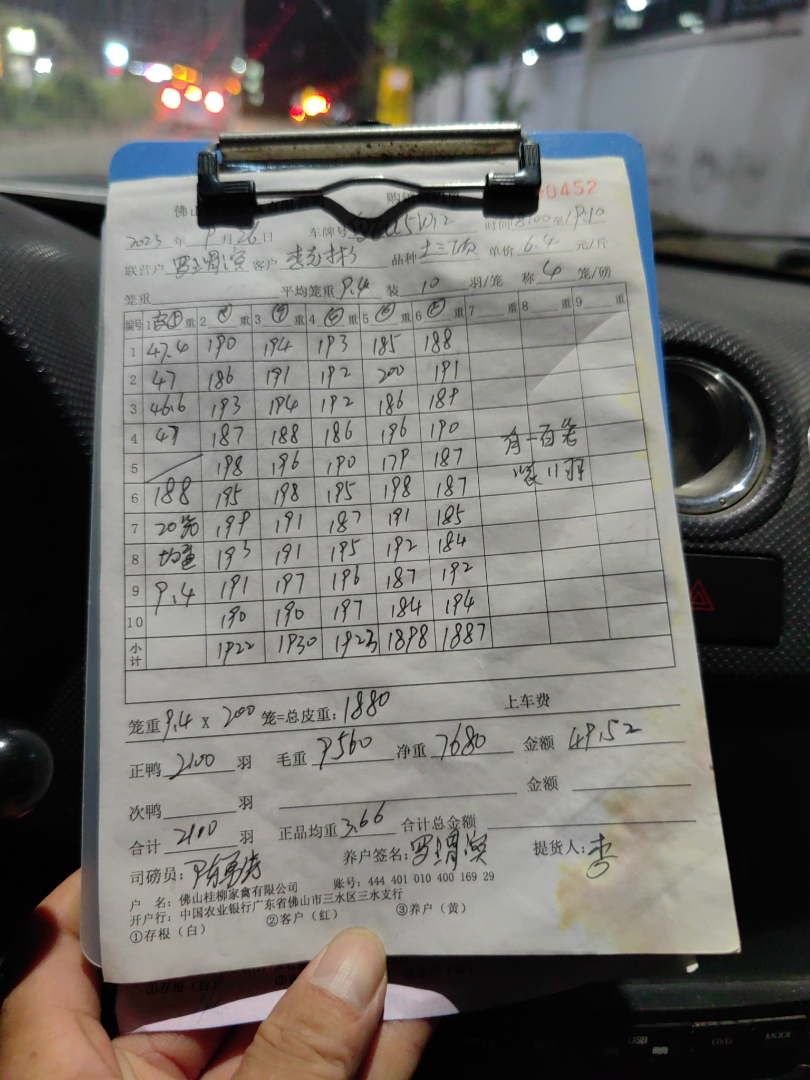 佛山 购销
0452
2023 年 9 月 26 日 车牌号 时间 18:00 至 19:10
联营户 客户 品种 单价 6.4 元/斤
笼重 平均笼重 9.4 装 10 羽/笼 称 4 笼/磅
编号 1 重 2 重 3 重 4 重 5 重 6 重 7 重 8 重 9 重
1 47.4 190 194 193 185 188
2 47 186 191 192 200 191
3 46.6 193 194 192 186 189
4 47 187 188 186 196 190 有一百笼
5 198 196 190 179 187 装11羽
6 188 195 198 195 198 187
7 20笼 199 191 187 191 185
8 均重 193 191 195 192 184
9 9.4 191 197 196 187 192
10 190 190 197 184 194
小计 1922 1930 1923 1898 1887
笼重 9.4 x 200 笼=总皮重: 1880 上车费
正鸭 2100 羽 毛重 9560 净重 7680 金额 49152
次鸭 羽 金额
合计 2100 羽 正品均重 3.66 合计总金额
司磅员: 养户签名: 提货人: 李
户 名: 佛山桂柳家禽有限公司 账号: 444 401 010 400 169 29
开户行: 中国农业银行广东省佛山市三水区三水支行
①存根（白） ②客户（红） ③养户（黄）
USB DVD MODE